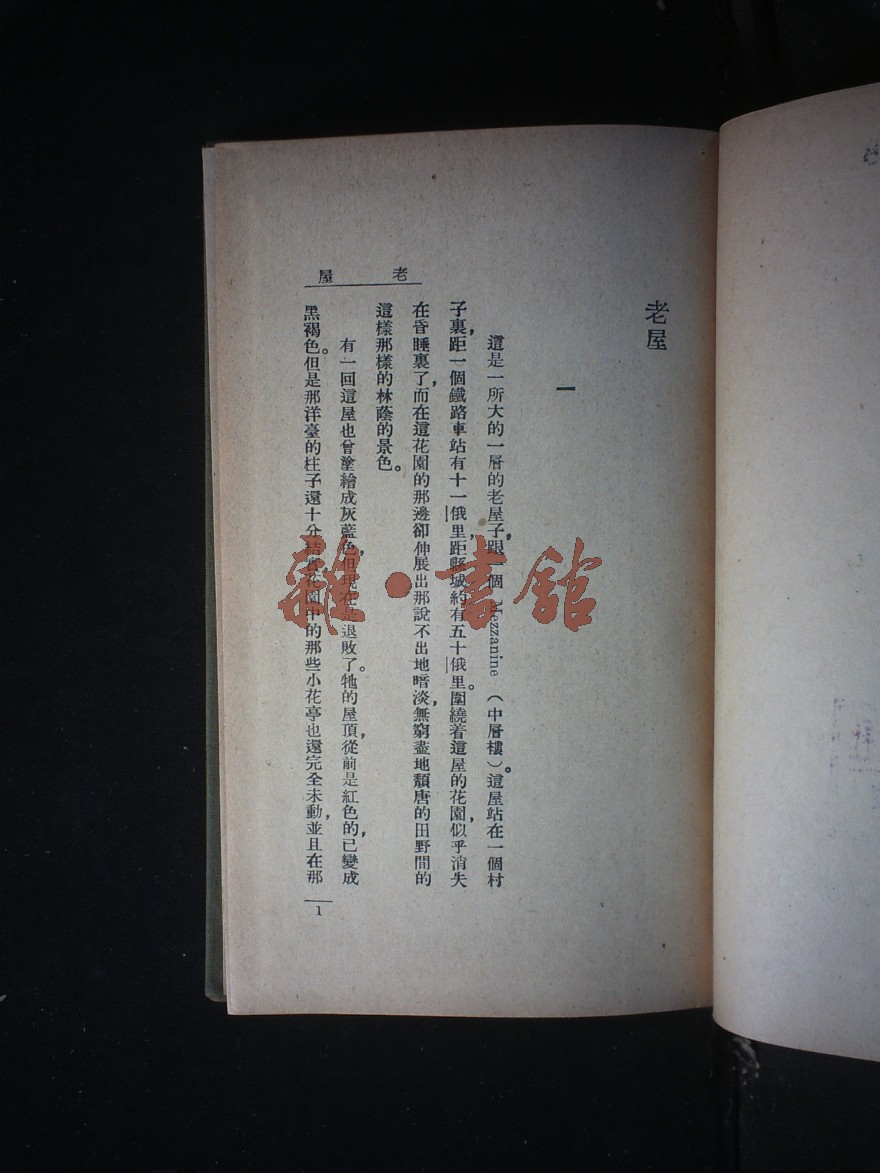 老屋
一
這是一所大的一層的老屋子，跟一個 Mezzanine （中層樓）。這屋站在一個村
子裏，距一個鐵路車站有十一俄里，距縣城約有五十俄里。圍繞着這屋的花園，似乎消失
在昏睡裏了，而在這花園的那邊卻伸展出那說不出地暗淡，無窮盡地頹唐的田野間的
這樣那樣的林蔭的景色。
有一回這屋也曾塗繪成灰藍色，但現在是退敗了。牠的屋頂，從前是紅色的，已變成
黑褐色。但是那洋臺的柱子還十分結實，花園中的那些小花亭也還完全未動，並且在那
老屋
1
雜·書館